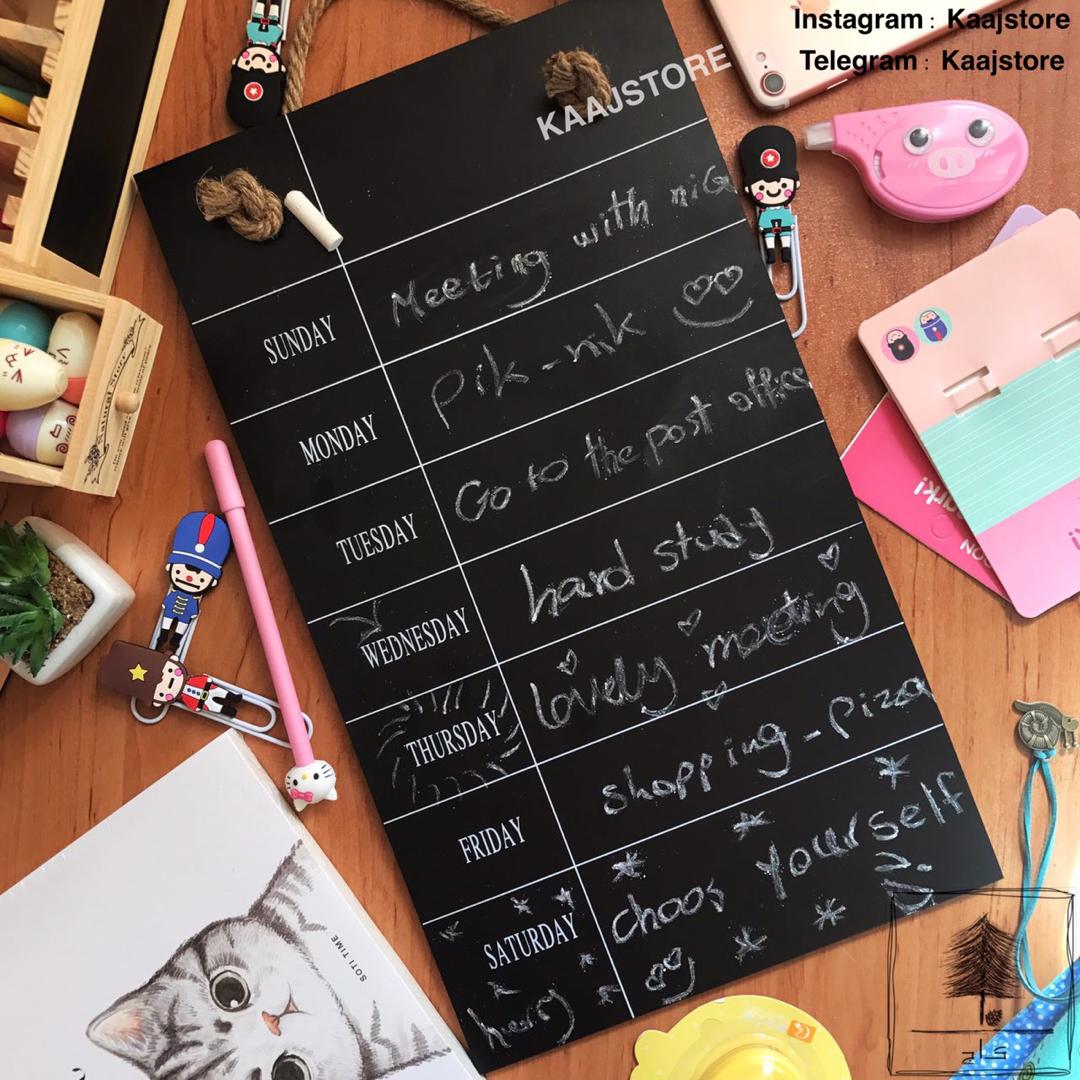 Instagram : Kaajstore
Telegram : Kaajstore
KAAJSTORE
SUNDAY
Meeting with
MONDAY
Pik-nik
TUESDAY
Go to the post office
WEDNESDAY
hard study
THURSDAY
lovely meeting
FRIDAY
shopping - pizza
SATURDAY
choos yourself
SOTI TIME
Natural Story
کاج